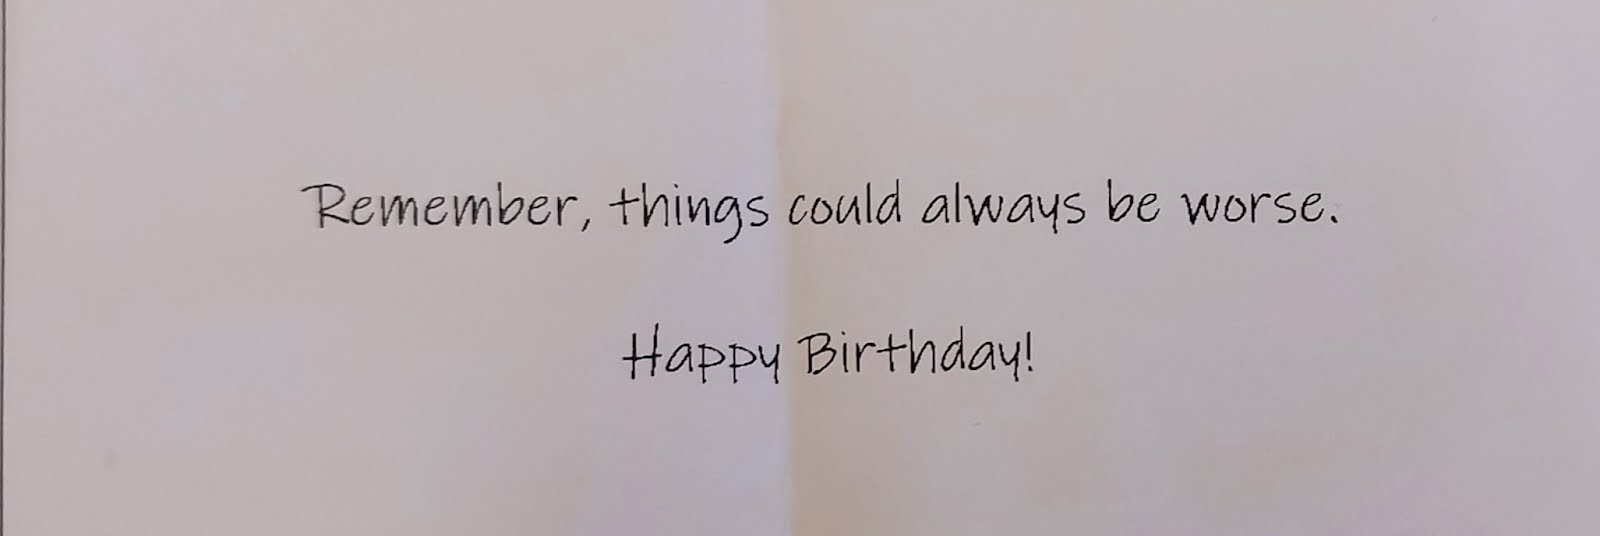 Remember, things could always be worse.
Happy Birthday!